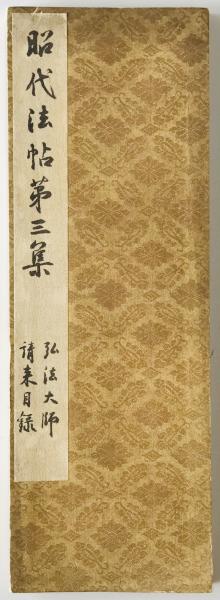 昭代法帖第三集
弘法大師
請来目録